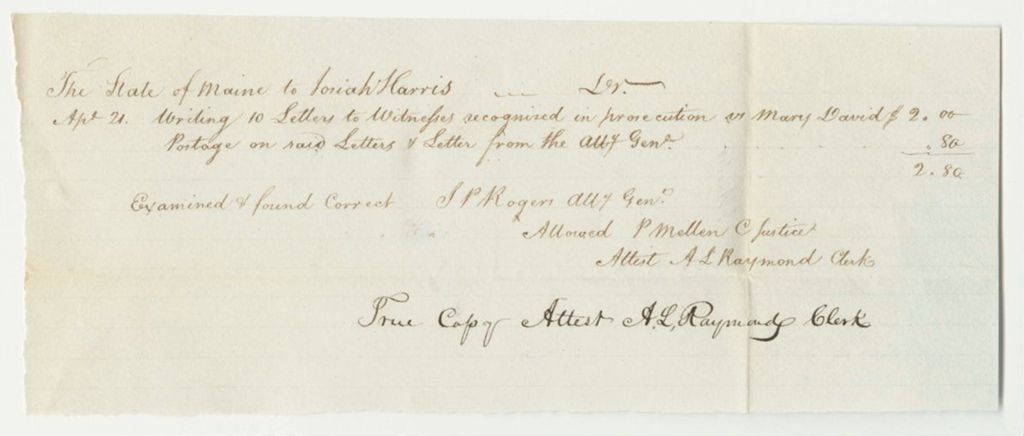 The State of Maine to Josiah Harris — Dr. —
Apl 21. Writing 10 Letters to Witnesses recognized in prosecution vs Mary David $ 2.00
Postage on said Letters & Letter from the Atty Genl. .80
2.80
Examined & found Correct J P Rogers Atty Genl.
Allowed P Mellen C Justice
Attest A L Raymond Clerk
True Copy Attest A. L. Raymond Clerk